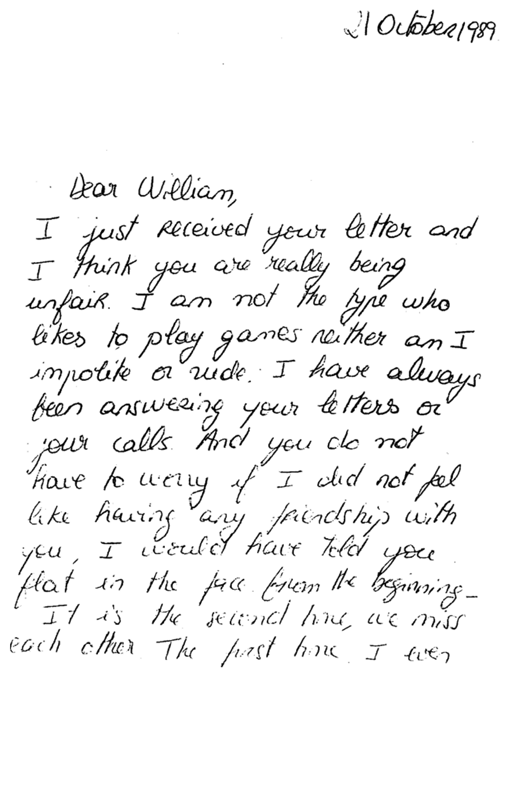 21 October 1989
Dear William,
I just received your letter and
I think you are really being
unfair. I am not the type who
likes to play games neither am I
impolite or rude. I have always
been answering your letters or
your calls. And you do not
have to worry if I did not feel
like having any friendship with
you, I would have told you
flat in the face from the beginning_
It is the second time, we miss
each other. The first time I even